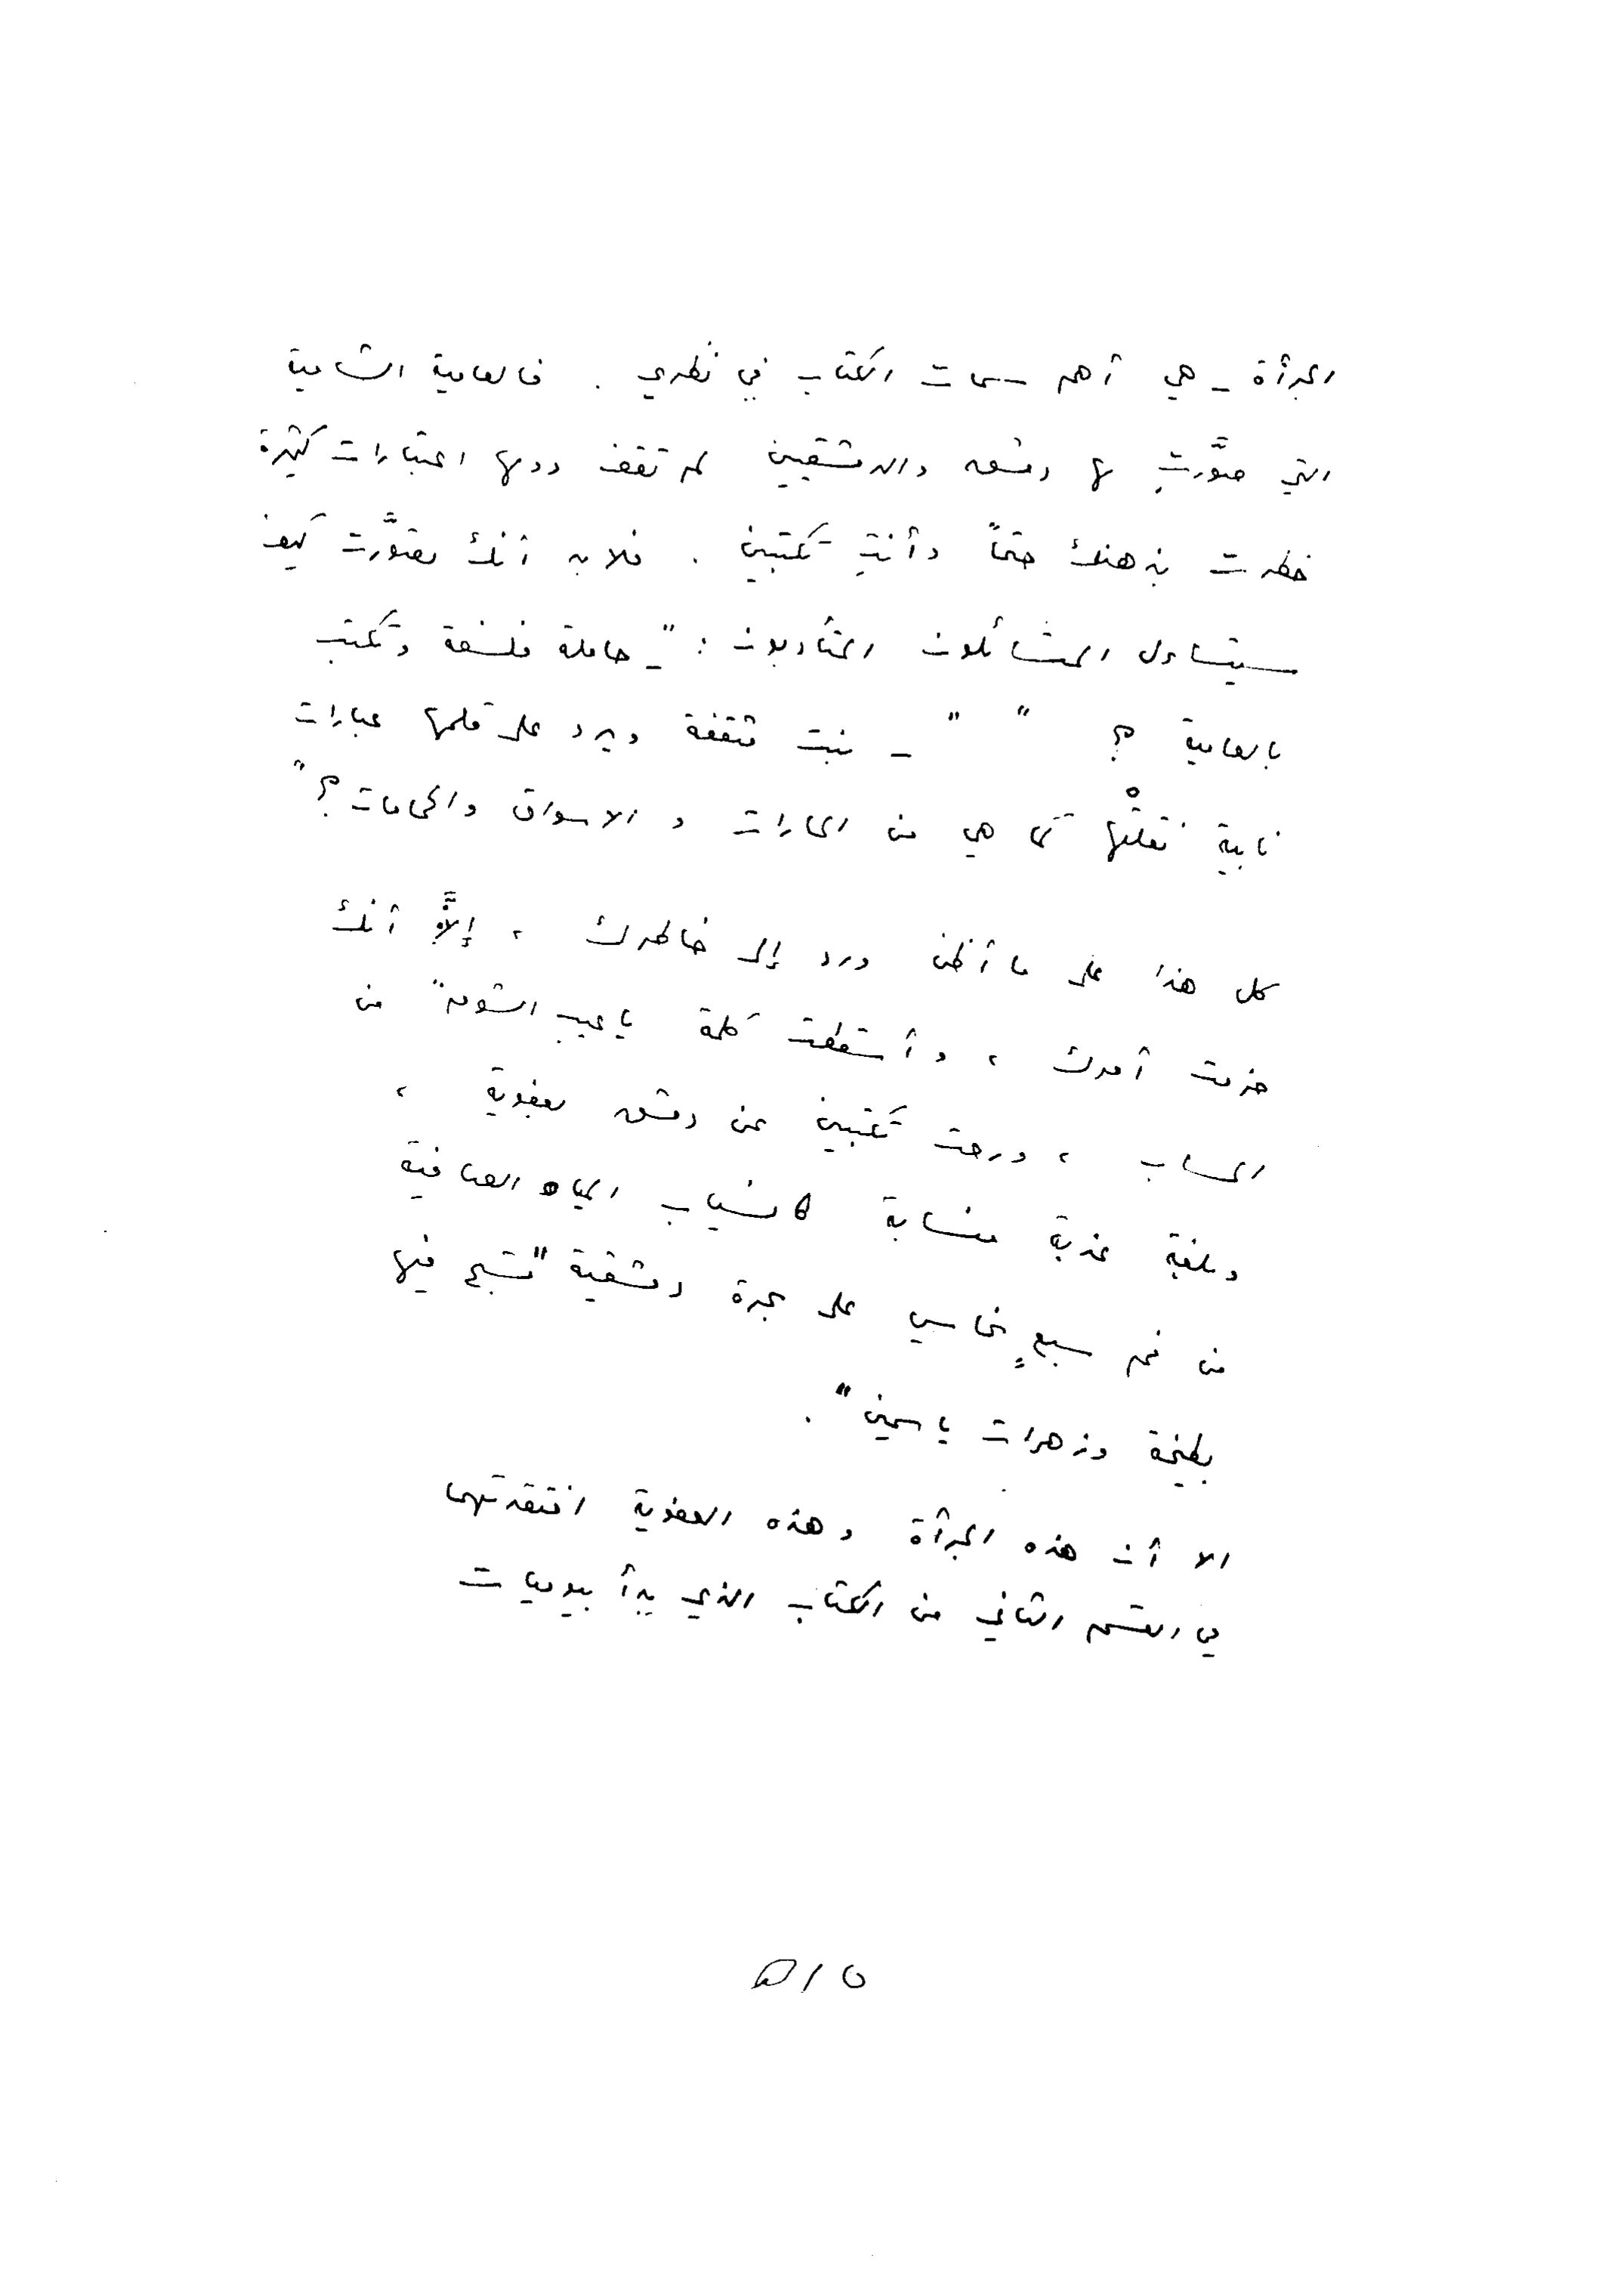 الجرأة - هي أهم سمات الكتاب في نظري . فالعامية الشامية
التي صوَّرتِ لها دمشق والدمشقيين لم تقف دونها اعتبارات كثيرة
خطرت بذهنك حتماً وأنتِ تكتبين . فلابد أنك تصوَّرت كيف
سيتساءل المتسائلون المتأدبون : " - حاملة فلسفة وتكتب
بالعامية ؟ " " - بنت مثقفة ويرد على قلمها عبارات
نابية نقلتْها كما هي من الحارات و الاسواق والحمامات ؟ "
كل هذا على ما أظن ورد إلى خاطرك ، إلاَّ أنك
حزمت أمرك ، وأسقطت كلمة يا عيب الشوم " من
الحساب ، ورحت تكتبين عن دمشق بعفوية ،
وبلغة عذبة منسابة كانسياب المياه الصافية
من فم سبعٍ نحاسي على بحرة دمشقية " تسبح فيها
بطيخة وزهرات ياسمين " .
الا أن هذه الجرأة وهذه العفوية افتقدتهما
في القسم الثاني من الكتاب الذي يبدأ بيوميات